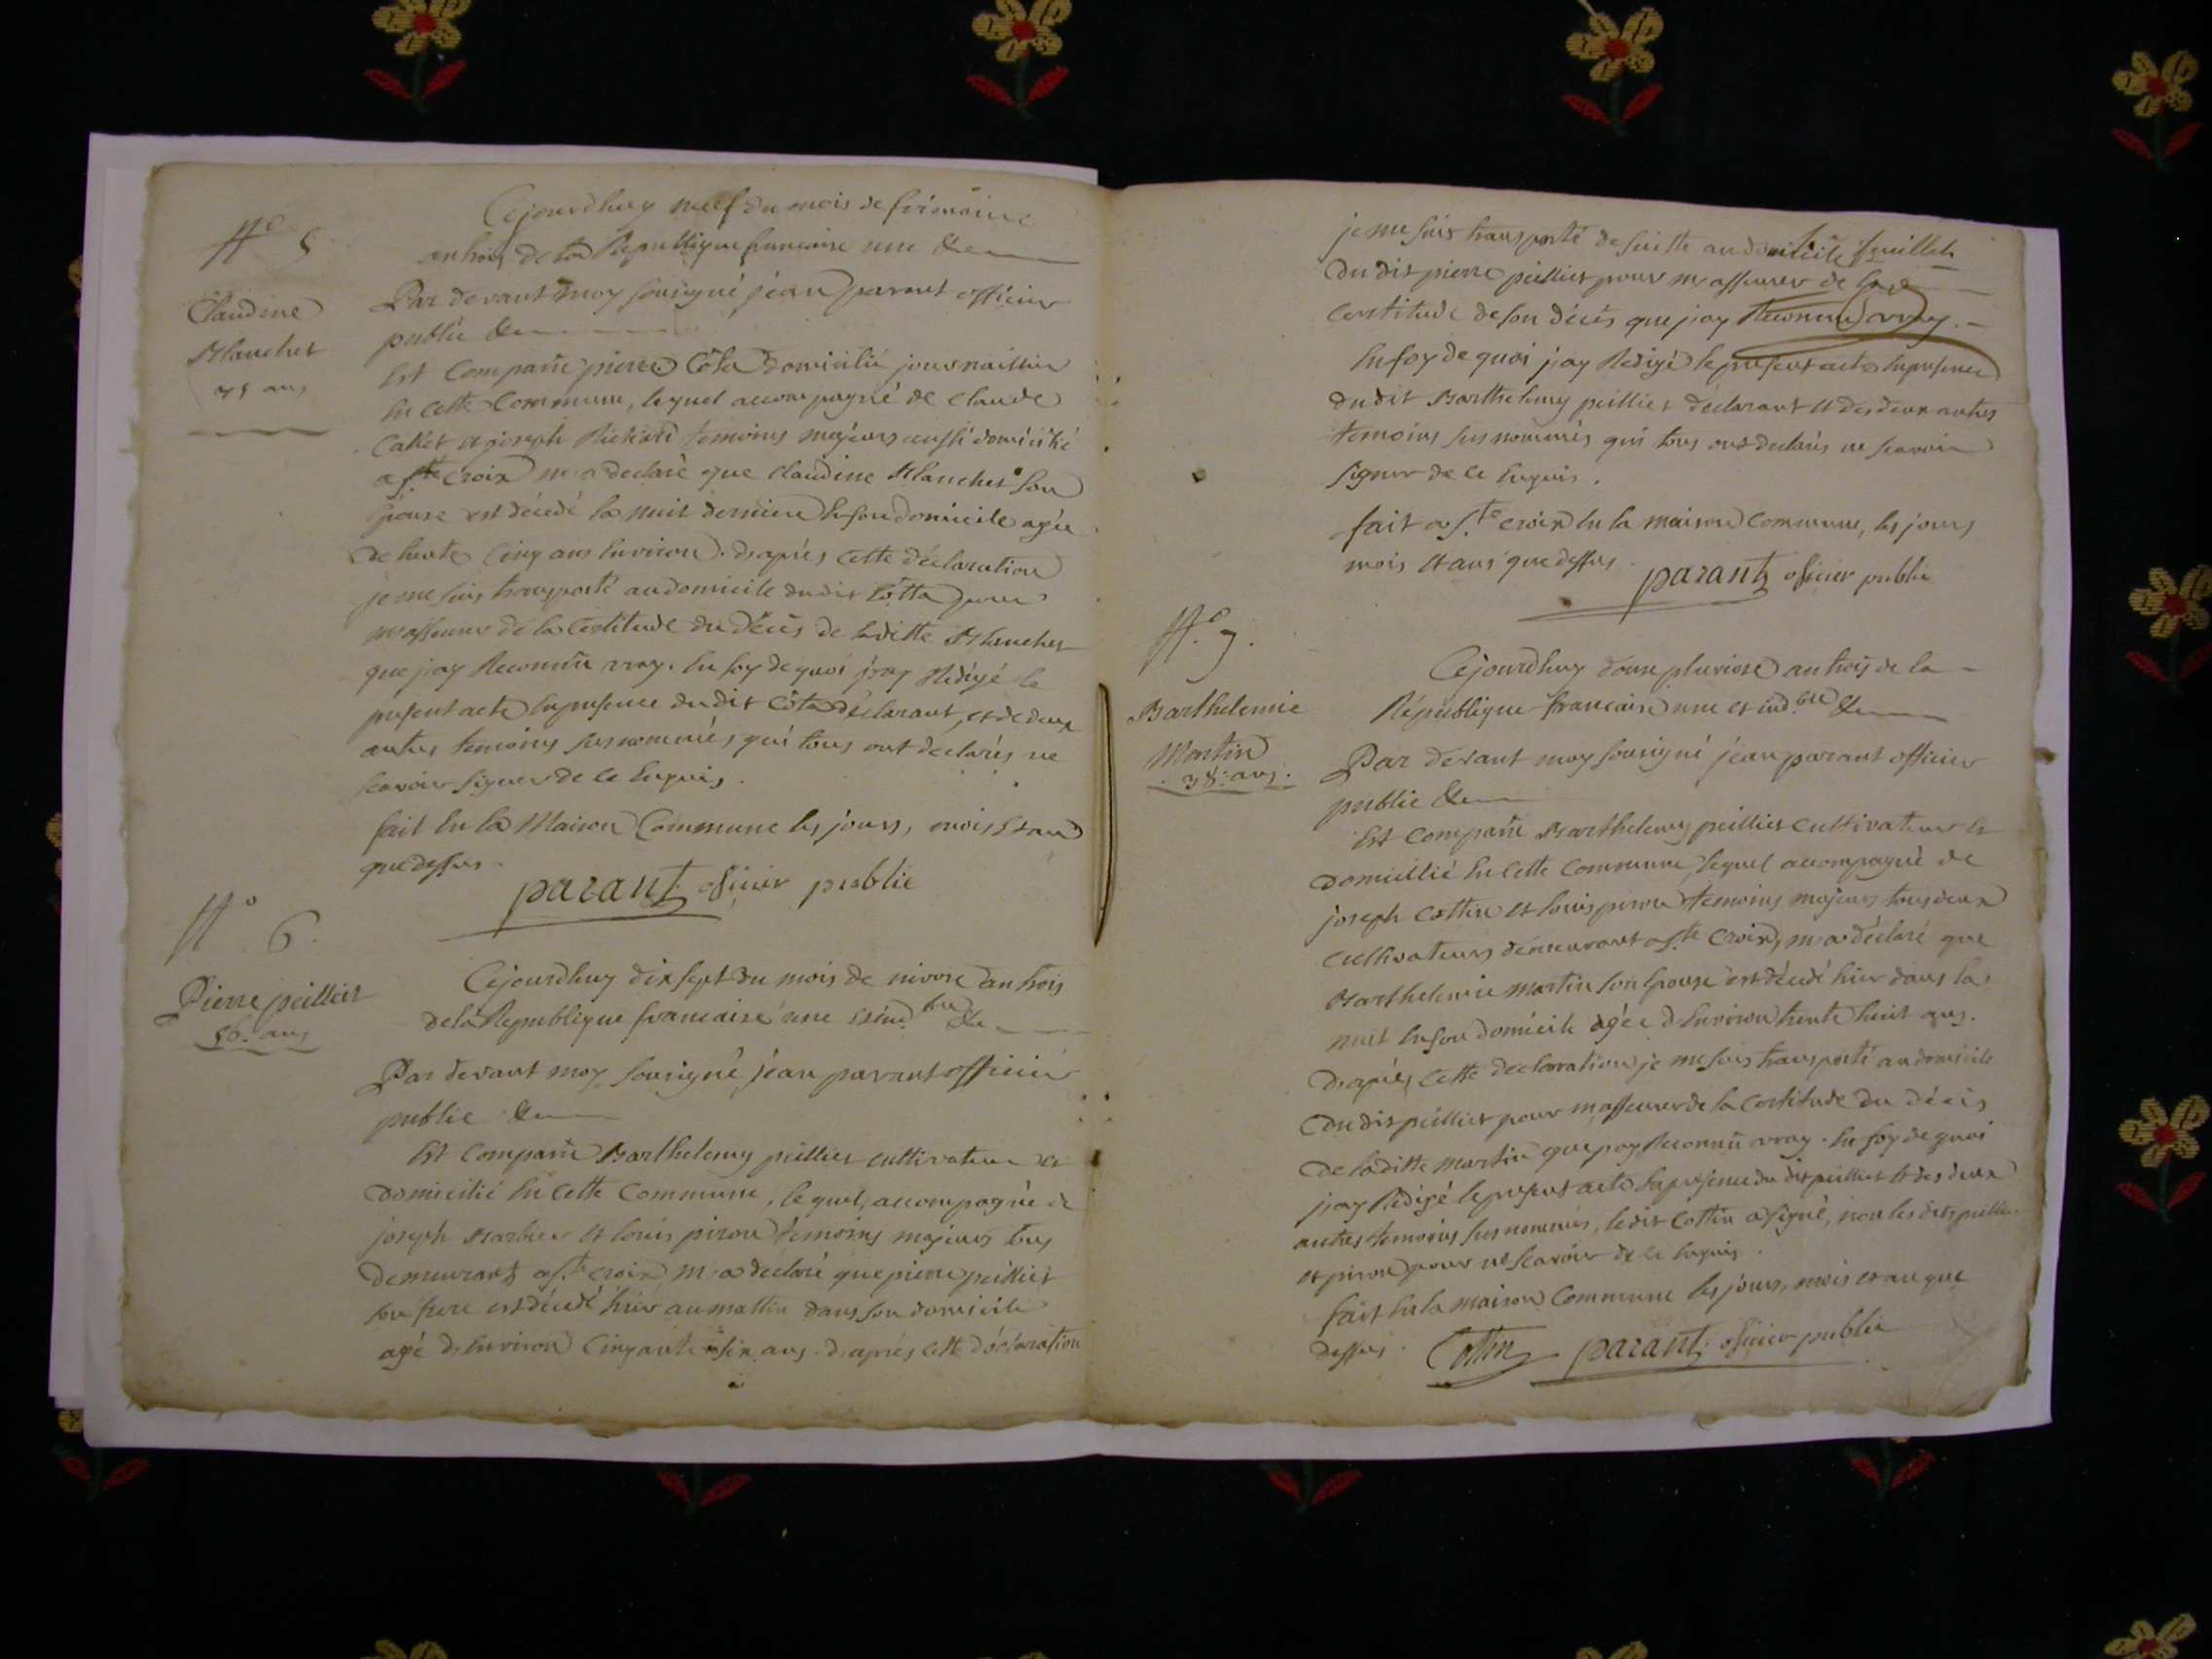 N.º 5
Claudine
Blanchet
35 ans
Cejourdhuy neuf du mois de frimaire
an trois de la Republique francaise une &c
Par devant moy sousigné jean parant officier
public &c
Est Comparu pierre Côta domicilié journaillier
En cette Commune, lequel accompagné de Claude
et joseph Richard temoins majeurs aussi domicilié
a Ste Croix m'a declaré que Claudine Blanchet son
Epouse est décédé la nuit derniere En son Domicile agée
de trente Cinq ans Environ. d'après cette déclaration
je me suis transporté au domicile dudit Cotta pour
m'assurer de la Certitude du décès de laditte Blanchet
que j'ay Reconnü vray. En foy de quoi j'ay Rédigé le
present acte En presence du dit Côta déclarant, et de deux
autres temoins susnommés qui tous ont declarés ne
scavoir signer de ce Enquis.
fait En la Maison Commune les jours, mois Et an
que dessus.
parant officier public
N.º 6.
Pierre peilliet
56. ans
Cejourdhuy dix sept du mois de nivose an trois
de la Republique francaise une Et ind.ble &c
Par devant moy sousigné jean parant officier
public &c
Est Comparu Barthelemy peilliet cultivateur et
Domicilié En cette Commune, lequel accompagné de
joseph Barbier et louis piron temoins majeurs tous
Demeurants a S.te croix m'a declaré que pierre peilliet
son frere est décédé hier au mattin dans son domicile
agé d'Environ Cinquante six ans. d'après cette déclaration
je me suis transporté de suitte au domicile
du dit pierre peilliet pour m'assurer de la
Certitude de son décès que j'ay Reconnu vray.
En foy de quoi j'ay Redigé le present acte En presence
du dit Barthelemy peilliet déclarant et des deux autres
temoins susnommés qui tous ont declarés ne scavoir
signer de ce Enquis.
fait a S.te croix En la maison Commune, les jours
mois et ans que dessus.
parant officier public
N.º 7.
Barthelemie
Martin
38. ans.
Cejourdhuy douze pluviose an trois de la
République francaise une et ind.ble &c
Par devant moy sousigné jean parant officier
public &c
Est Comparu Barthelemy peilliet Cultivateur et
domicilié En cette Commune, lequel accompagné de
joseph Cottin et louis piron temoins majeurs tous deux
cultivateurs demeurant a S.te Croix, m'a déclaré que
Barthelemie martin son Epouse est décédé hier dans la
nuit En son domicile agée d'Environ trente huit ans.
d'après cette declaration je me suis transporté au domicile
du dit peilliet pour m'assurer de la Certitude du décès
de laditte martin que j'ay Reconnü vray. En foy de quoi
j'ay Rédigé le present acte En presence du dit peilliet et des deux
autres temoins susnommés, ledit Cottin a signé, non les dits peilliet
et piron pour ne scavoir de ce Enquis.
fait En la maison Commune les jours, mois et an que
dessus.
Cottin parant officier public